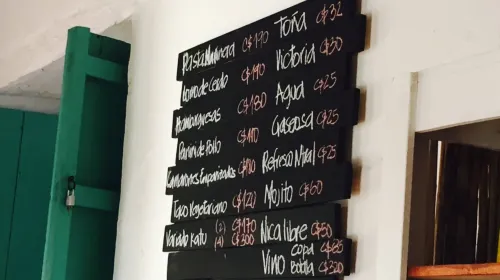 Pasta Marinera C$190 Toña C$32
Lomo de Cerdo C$190 Victoria C$30
Hamburguesas C$180 Agua C$25
Panini de Pollo Gaseosa C$25
Camarones Empanizados Refresco Natural C$25
Taco Vegetariano C$120 Mojito C$60
Variado Kato (2) C$170 Nica libre C$50
(4) C$300 Vino Copa C$85
Botella C$320